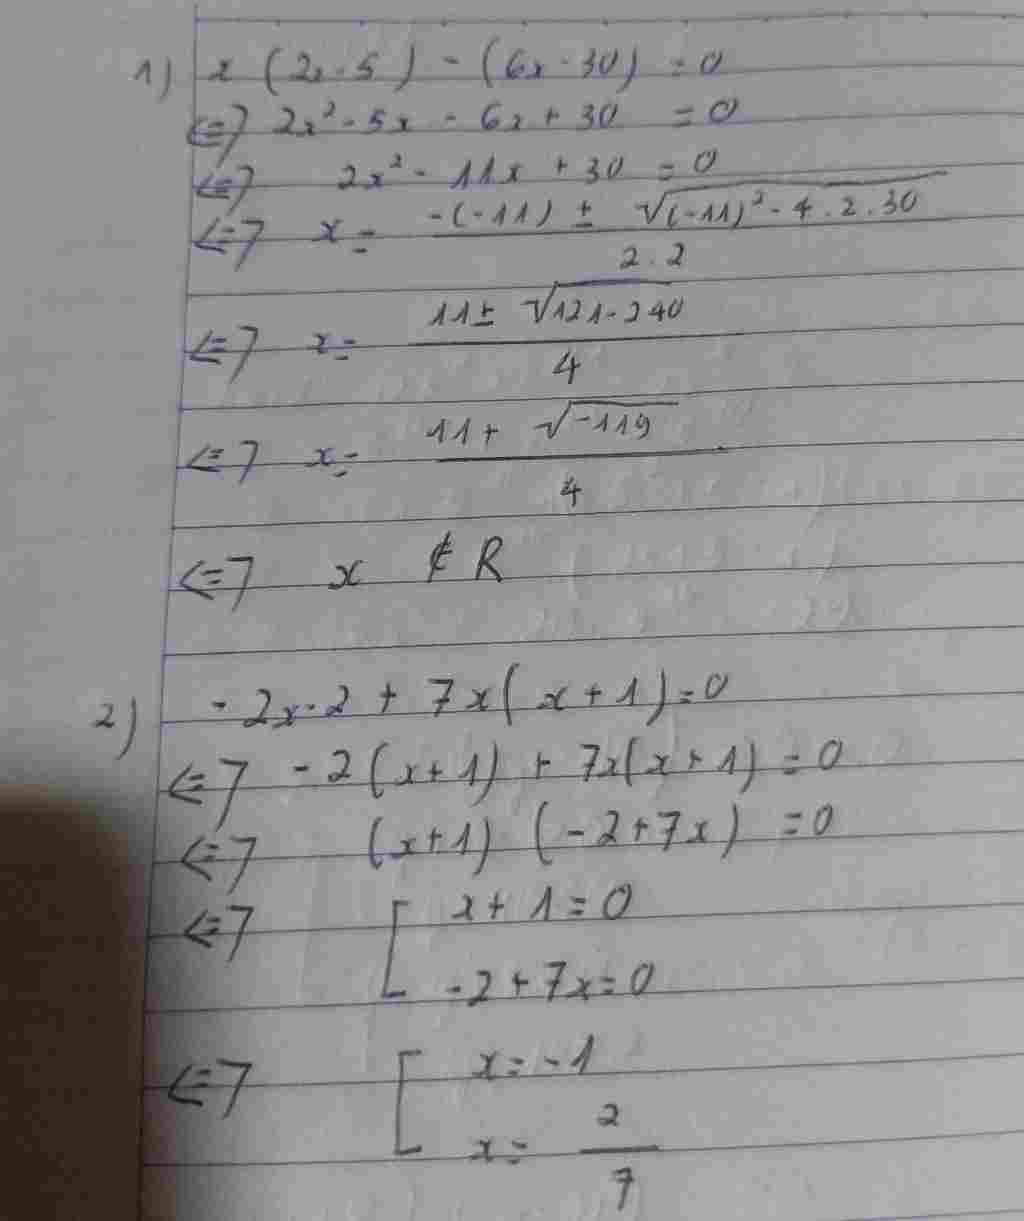 1) x (2x - 5) - (6x - 30) = 0
<=> 2x² - 5x - 6x + 30 = 0
<=> 2x² - 11x + 30 = 0
<=> x = (-(-11) ± √((-11)² - 4 . 2 . 30)) / (2 . 2)
<=> x = (11 ± √(121 - 240)) / 4
<=> x = (11 + √(-119)) / 4
<=> x ∉ R
2) - 2x - 2 + 7x(x + 1) = 0
<=> - 2(x + 1) + 7x(x + 1) = 0
<=> (x + 1) (- 2 + 7x) = 0
<=> [ x + 1 = 0
- 2 + 7x = 0
<=> [ x = - 1
x = 2 / 7